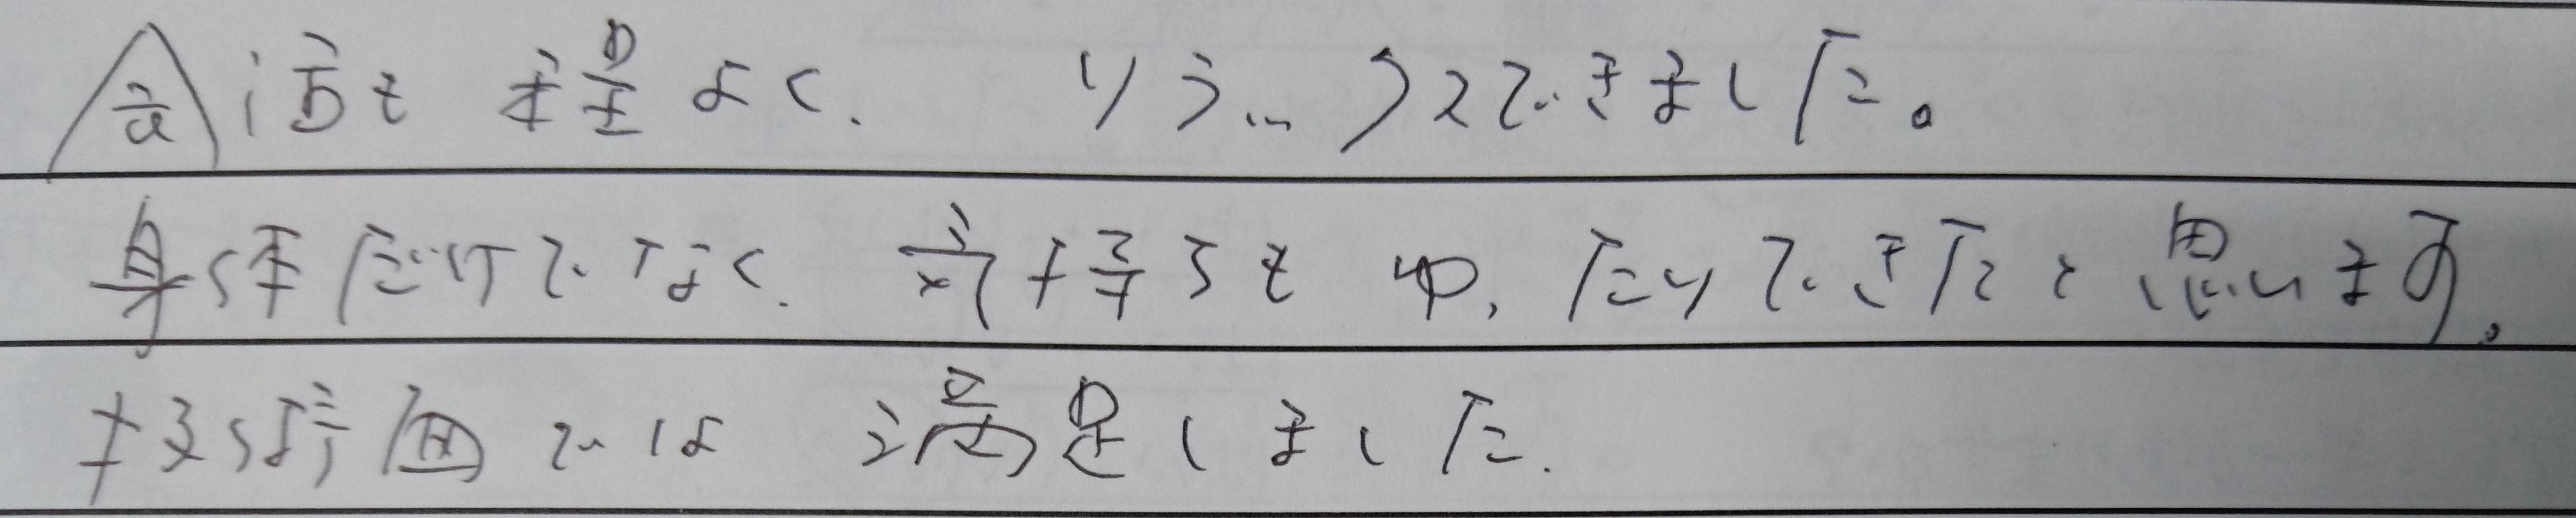 会話も程よく、リラックスできました。
身体だけでなく、気持ちもゆったりできたと思います。
接待面では満足しました。